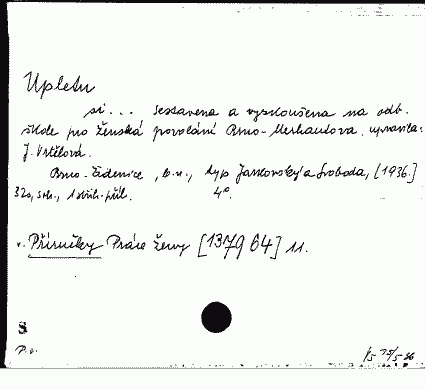 Upletu
si ... Sestavena a vyzkoušena na odb.
škole pro ženská povolání Brno-Merhautova, upravila:
J. Vrtělová.
Brno-Židenice, b.n., typ Jankovský a Svoboda, [1936.]
32o, str., 1 střih. příl. 4°.
v. Příručky Práce ženy [1379 64] 11.
S
P.o.